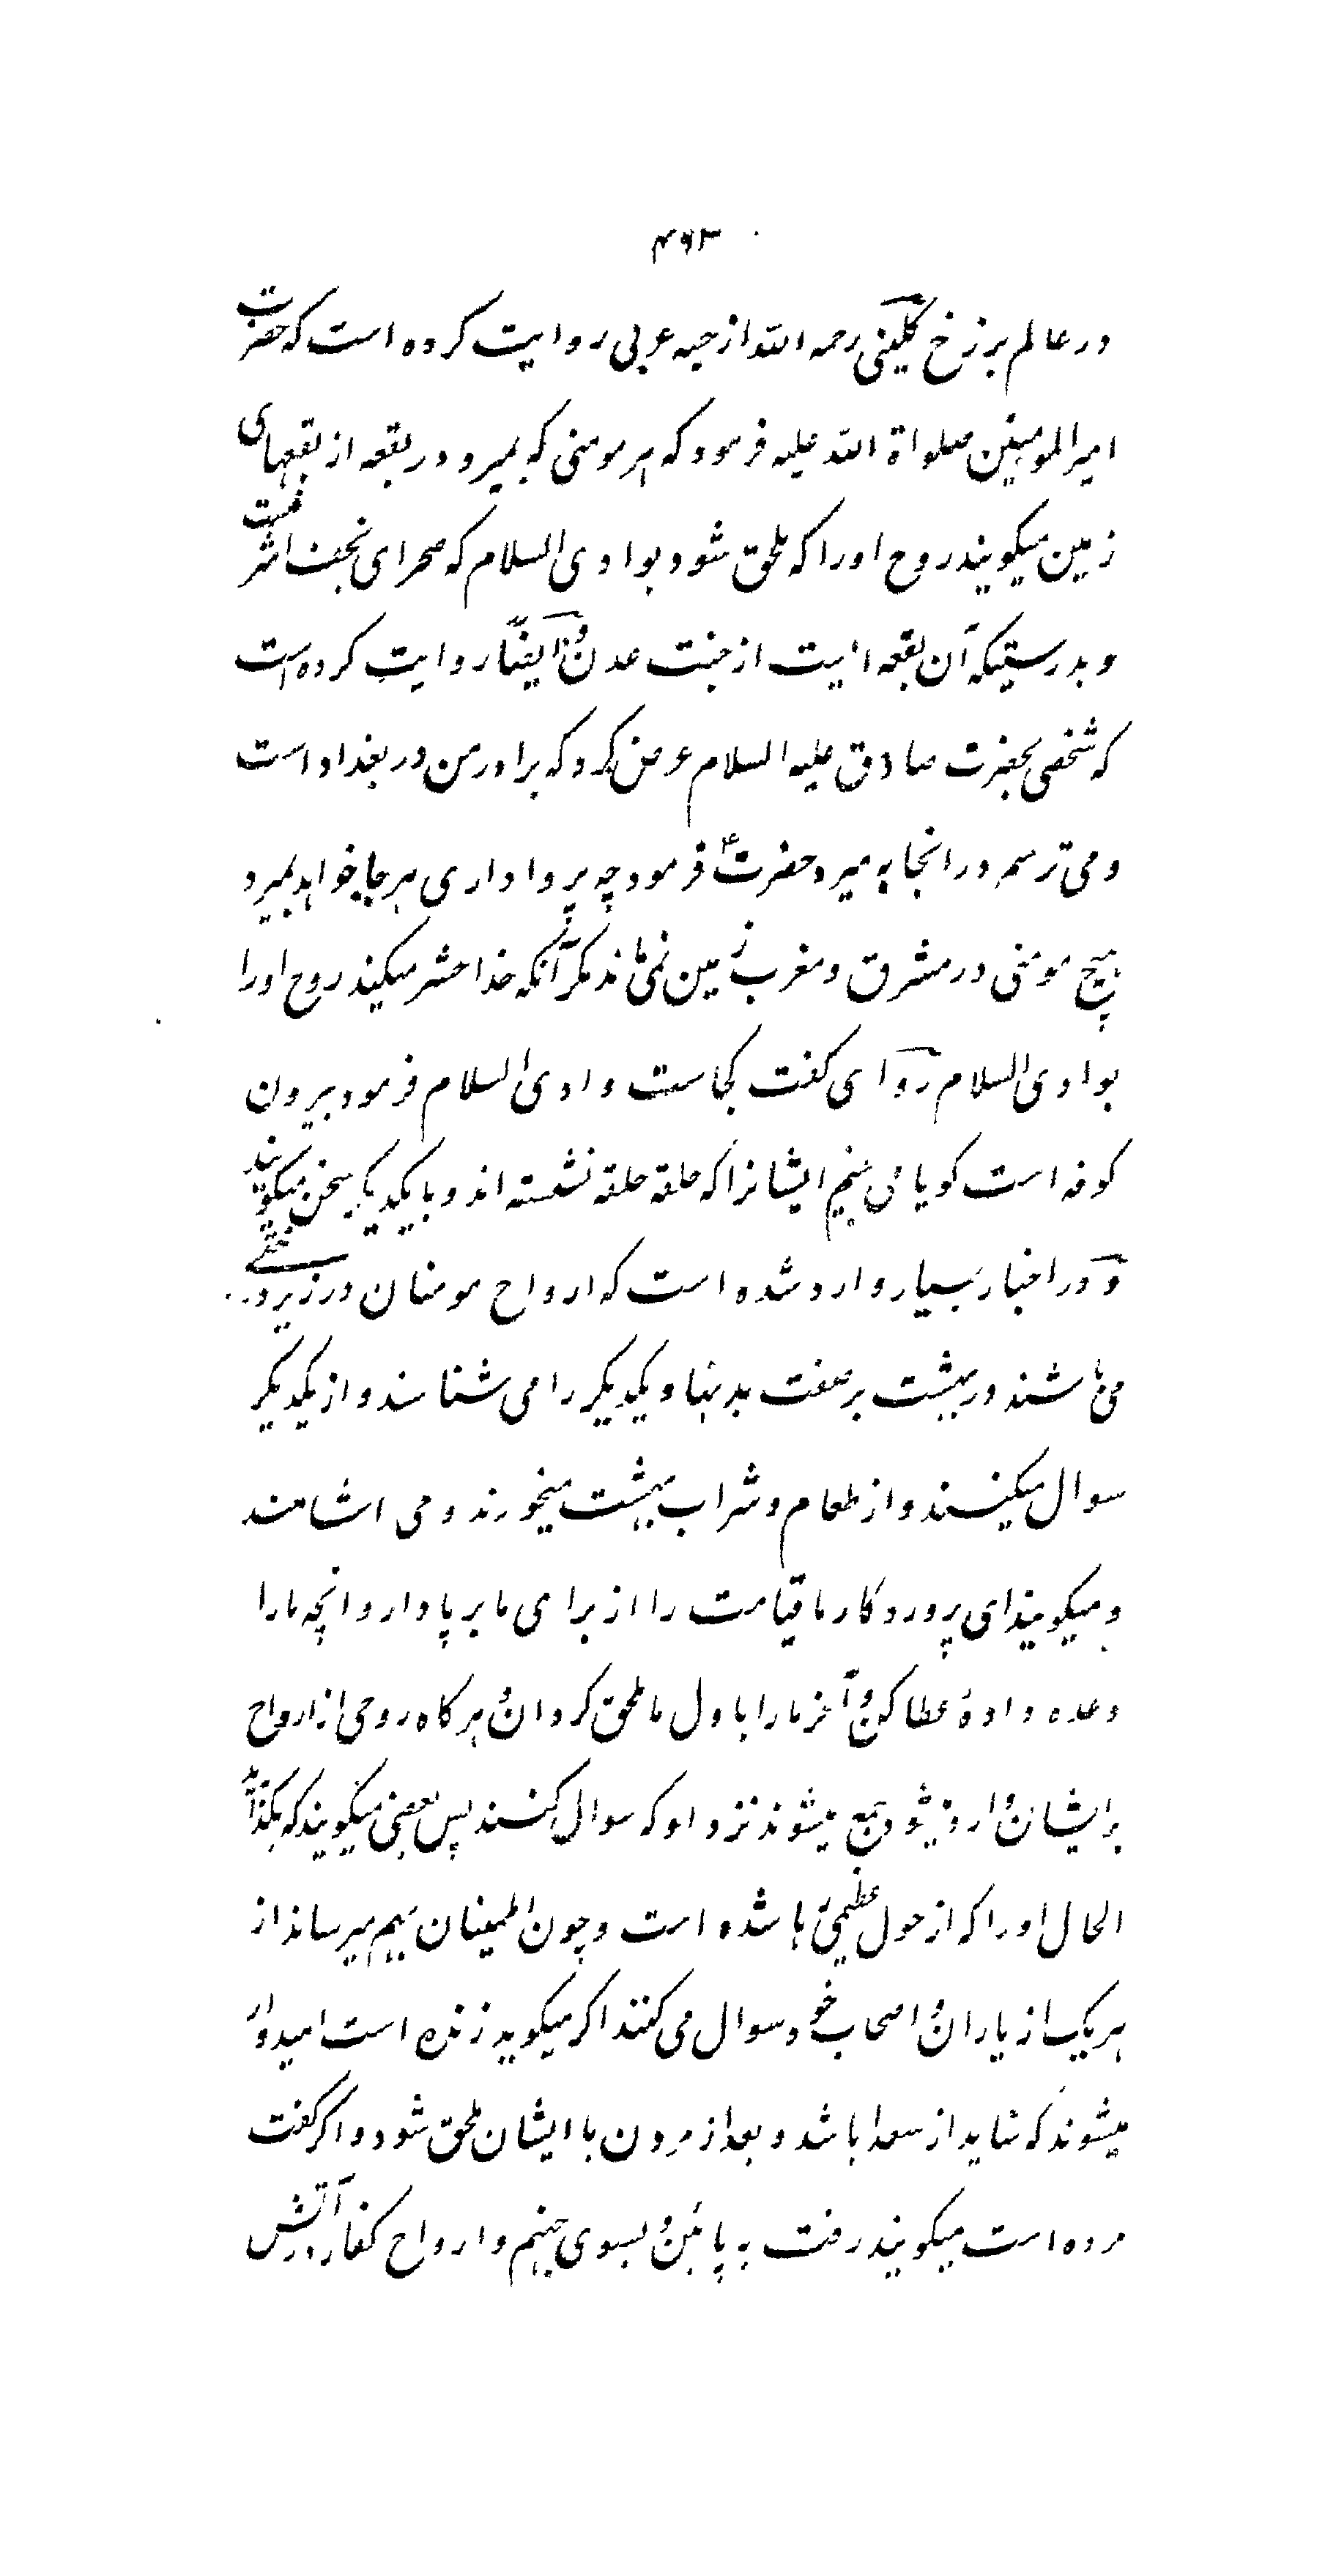 ۴۶۳
در عالم برزخ کلینی رحمه الله از حبه عربی روایت کرده است که حضرت
امیرالمومنین صلواة الله علیه فرمود که هر مومنی که بمیرد در بقعه از بقعهای
زمین میکویند روح اورا که ملحق شود بوادی السلام که صحرای نجف اشرفست
و بدرستیکه آن بقعه ایست از جنت عدن و ایضًا روایت کرده است
که شخصی بحضرت صادق علیه السلام عرض کرد که برادر من در بغداد است
و می ترسم در انجا بمیرد حضرت ع فرمود چه پروا داری هر جا خواهد بمیرد
هیچ مومنی در مشرق و مغرب زمین نمی ماند مکر آنکه خدا حشر میکند روح اورا
بوادی السلام روای کفت کجاست وادی السلام فرمود بیرون
کوفه است کویا می بینم ایشانرا که حلقه حلقه نشسته اند و با یکدیکر سخن میکویند
و در اخبار بسیار وارد شده است که ارواح مومنان در زیر درختی
می باشند در بهشت بر صفت بدنها و یکدیکر را می شناسند و از یکدیکر
سوال میکنند و از طعام و شراب بهشت میخورند و می اشامند
و میکویند ای پروردکار ما قیامت را از برای ما بر پا دار و انچه ما را
وعده دادهٔ عطا کن و آخر ما را باول ما ملحق کردان و هر کاه روحی از ارواح
بر ایشان وارد میشود جمع میشوند نزد او که سوال کنند پس بعضی میکویند که بکذارید
الحال اورا که از هول عظیمی رها شده است و چون اطمینان بهم میرساند از
هر یک از یاران و اصحاب خود سوال می کنند اکر میکوید زنده است امیدوار
میشوند که شاید از سعدا باشد و بعد از مردن با ایشان ملحق شود و اکر کفت
مرده است میکویند رفت به پائین و بسوی جهنم و ارواح کفار در آتش